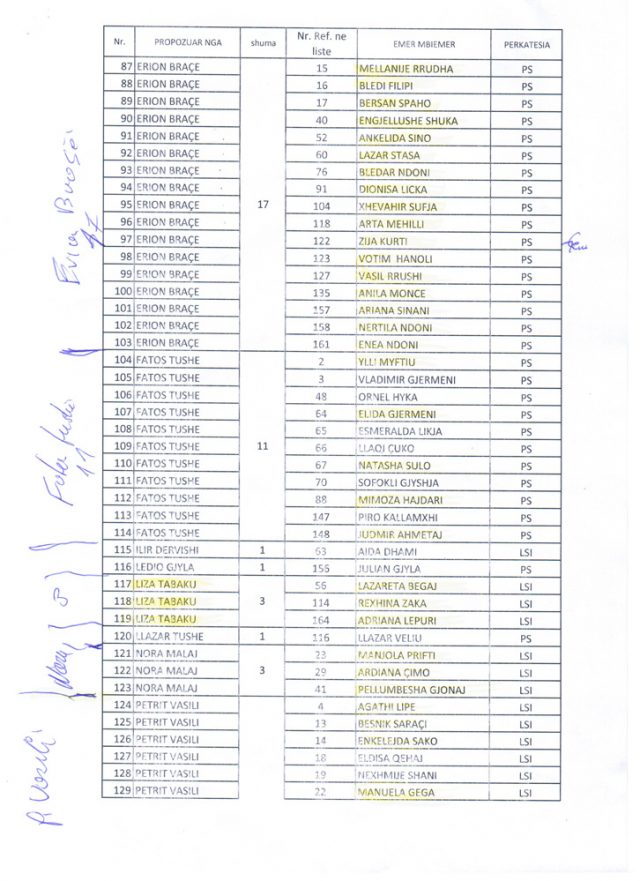 Nr. PROPOZUAR NGA shuma Nr. Ref. ne liste EMER MBIEMER PERKATESIA
87 ERION BRAÇE 15 MELLANIJE RRUDHA PS
88 ERION BRAÇE 16 BLEDI FILIPI PS
89 ERION BRAÇE 17 BERSAN SPAHO PS
90 ERION BRAÇE 40 ENGJELLUSHE SHUKA PS
91 ERION BRAÇE 52 ANKELIDA SINO PS
92 ERION BRAÇE 60 LAZAR STASA PS
93 ERION BRAÇE 76 BLEDAR NDONI PS
94 ERION BRAÇE 91 DIONISA LICKA PS
95 ERION BRAÇE 17 104 XHEVAHIR SUFJA PS
96 ERION BRAÇE 118 ARTA MEHILLI PS
97 ERION BRAÇE 122 ZIJA KURTI PS
98 ERION BRAÇE 123 VOTIM HANOLI PS
99 ERION BRAÇE 127 VASIL RRUSHI PS
100 ERION BRAÇE 135 ANILA MONCE PS
101 ERION BRAÇE 157 ARIANA SINANI PS
102 ERION BRAÇE 158 NERTILA NDONI PS
103 ERION BRAÇE 161 ENEA NDONI PS
104 FATOS TUSHE 2 YLLI MYFTIU PS
105 FATOS TUSHE 3 VLADIMIR GJERMENI PS
106 FATOS TUSHE 48 ORNEL HYKA PS
107 FATOS TUSHE 64 ELIDA GJERMENI PS
108 FATOS TUSHE 65 ESMERALDA LIKJA PS
109 FATOS TUSHE 11 66 LLAQI ÇUKO PS
110 FATOS TUSHE 67 NATASHA SULO PS
111 FATOS TUSHE 70 SOFOKLI GJYSHJA PS
112 FATOS TUSHE 88 MIMOZA HAJDARI PS
113 FATOS TUSHE 147 PIRO KALLAMXHI PS
114 FATOS TUSHE 148 JUDMIR AHMETAJ PS
115 ILIR DERVISHI 1 63 AIDA DHAMI LSI
116 LEDIO GJYLA 1 156 JULIAN GJYLA PS
117 LIZA TABAKU 56 LAZARETA BEGAJ LSI
118 LIZA TABAKU 3 114 REXHINA ZAKA LSI
119 LIZA TABAKU 164 ADRIANA LEPURI LSI
120 LLAZAR TUSHE 1 116 LLAZAR VELIU PS
121 NORA MALAJ 23 MANJOLA PRIFTI LSI
122 NORA MALAJ 3 29 ARDIANA ÇIMO LSI
123 NORA MALAJ 41 PELLUMBESHA GJONAJ LSI
124 PETRIT VASILI 4 AGATHI LIPE LSI
125 PETRIT VASILI 13 BESNIK SARAÇI LSI
126 PETRIT VASILI 14 ENKELEJDA SAKO LSI
127 PETRIT VASILI 18 ELDISA QEHAJ LSI
128 PETRIT VASILI 19 NEXHMIJE SHANI LSI
129 PETRIT VASILI 22 MANUELA GEGA LSI
Erion Braçe
17
Fatos Tushe
11
P. Vasili